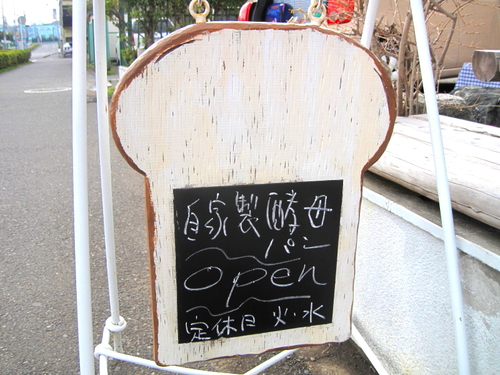 自家製酵母
パン
open
定休日 火・水